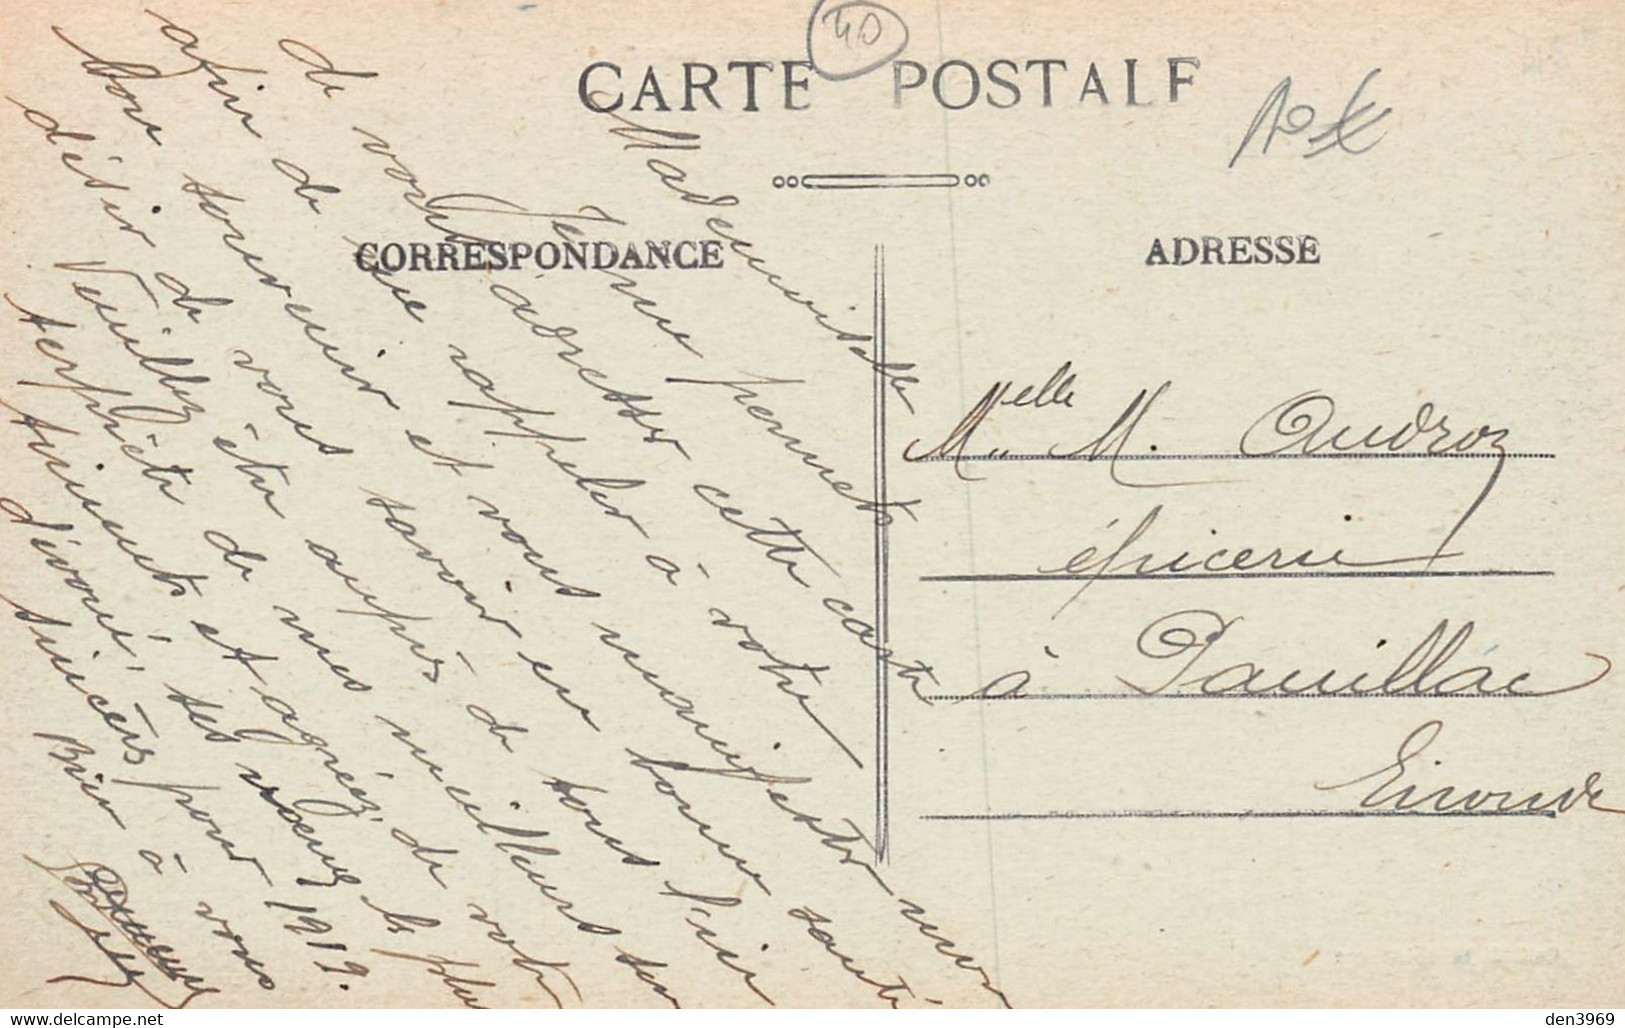 40
CARTE POSTALE
10 €
CORRESPONDANCE
ADRESSE
Mademoiselle
Je me permets
de vous adresser cette carte
afin de me rappeler à votre
bon souvenir et vous manifester mon
désir de vous savoir en bonne santé
Veuillez être auprès de tous l'in
terprète de mes meilleurs sen
timents et agréez de votre
dévoué, ses vœux les plus
sincères pour 1919.
Bien à vous
Melle M. Audroz
épicerie
à Pauillac
Gironde
den3969
www.delcampe.net